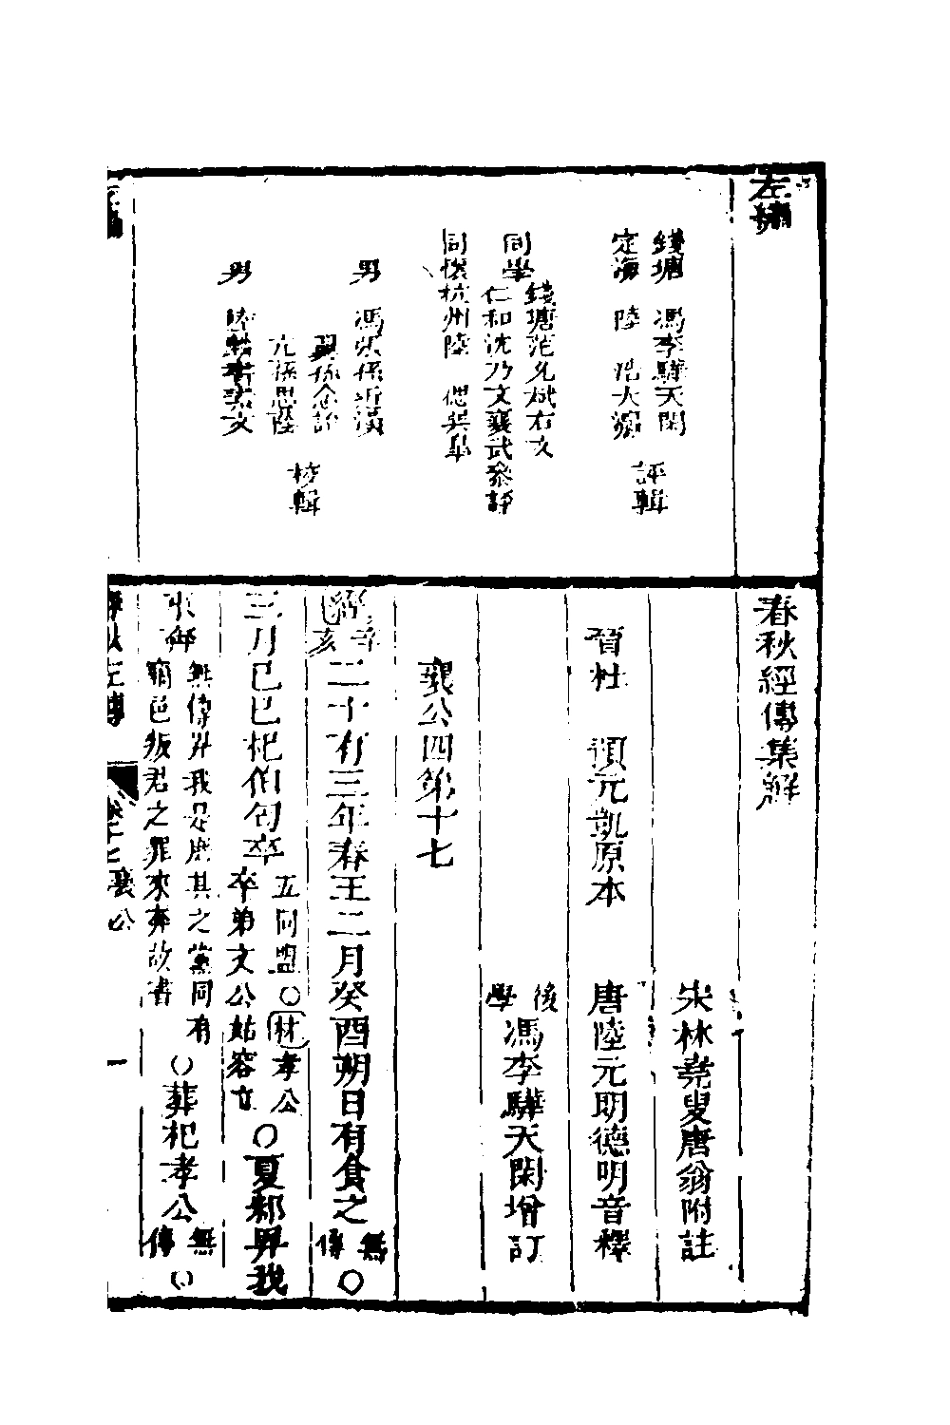 左繡
錢塘 馮李驊天閑
定海 陸 浩大瀛
評輯
同學
錢塘范允斌右文
仁和沈乃文襄武參評
同懷杭州陸 偲
男 馮張孫近潢
孫念詒
孫思陸
男 陸
文
校輯
春秋經傳集解
宋林堯叟唐翁附註
晉杜 預元凱原本
唐陸元朗德明音釋
後學馮李驊天閑增訂
襄公四第十七
經辛亥二十有三年春王二月癸酉朔日有食之無傳○
三月己巳杞伯匄卒五同盟○林孝公卒弟文公姑容立○夏邾畀我
來奔無傳畀我是庶其之黨同有竊邑叛君之罪來奔故書○葬杞孝公無傳○
左傳 卷十七襄公 一